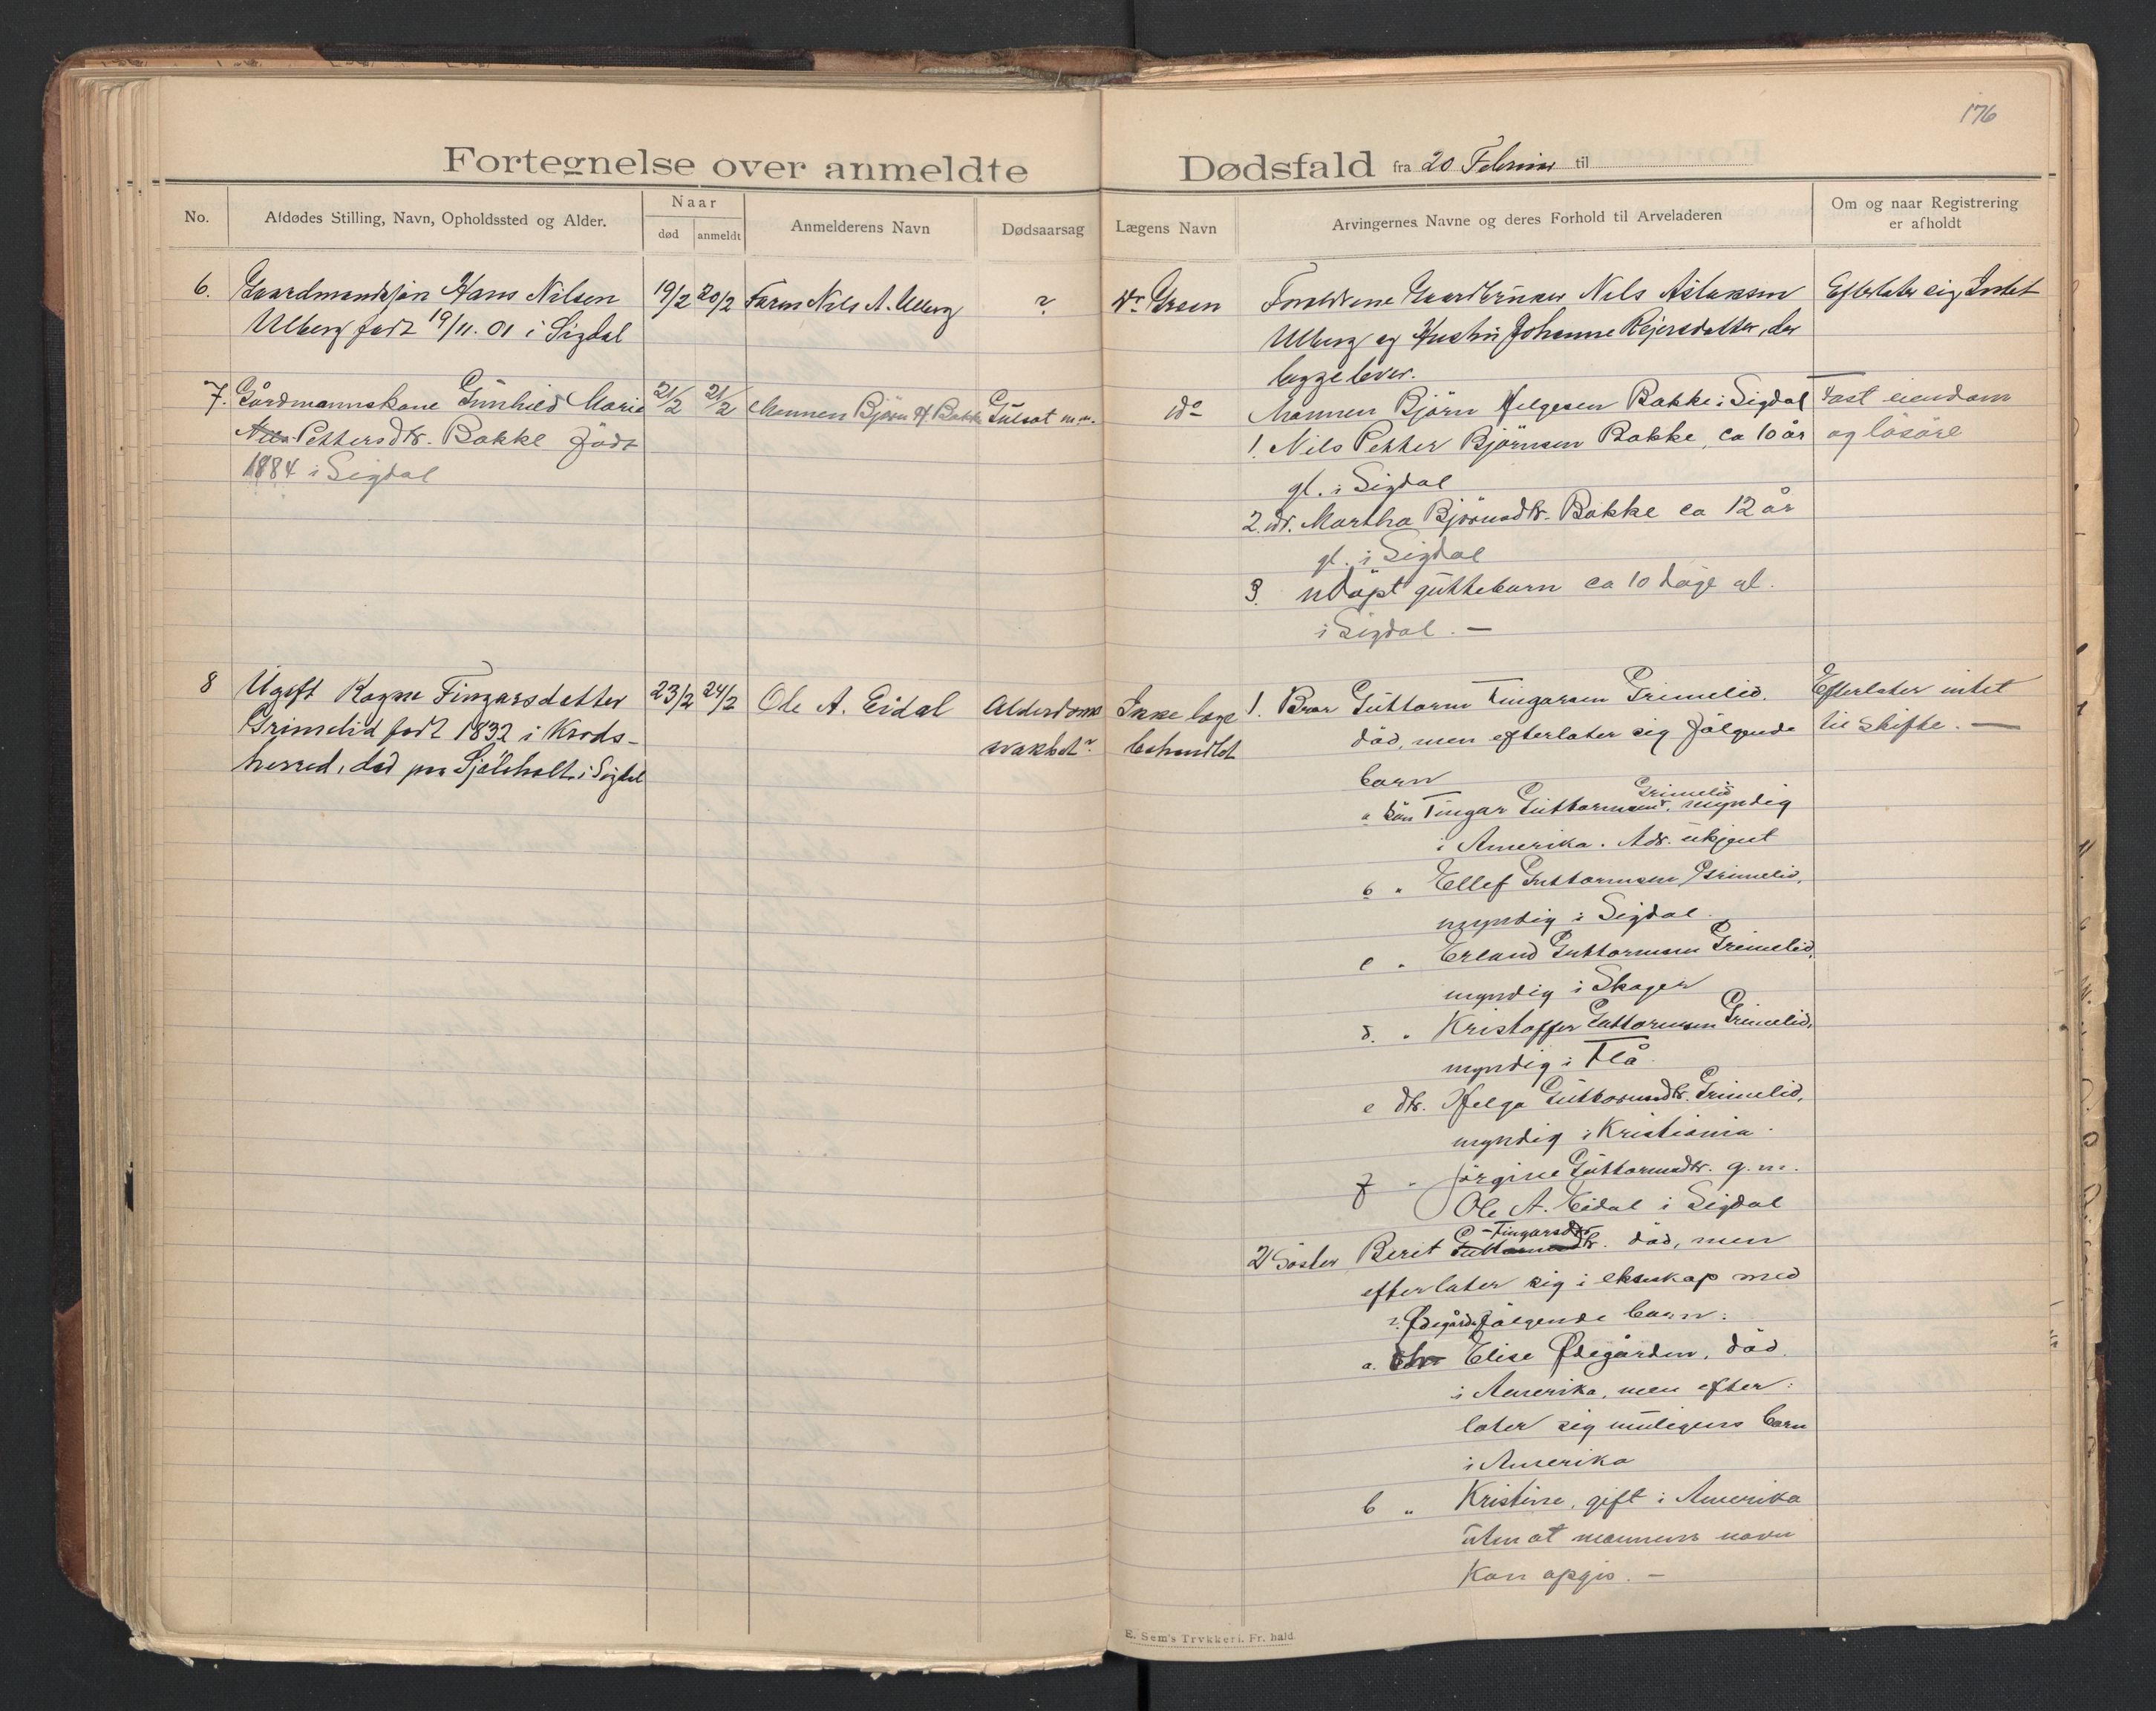 176
Fortegnelse over anmeldte Dødsfald fra 20 Februar til
No.
Afdødes Stilling, Navn, Opholdssted og Alder.
Naar
død
anmeldt
Anmelderens Navn
Dødsaarsag
Lægens Navn
Arvingernes Navne og deres Forhold til Arveladeren
Om og naar Registrering
er afholdt
6. Gaardmandssøn Hans Nilsen
Ulberg født 19/11. 01 i Sigdal
19/2 20/2 Faren Nils A. Ulberg
?
Dr.
Forældrene Gaardbruker Nils Aslaksen
Ulberg og Hustru Johanne Reiersdatter, der
begge lever.
Efterlater sig Intet
7. Gårdmannskone Gunhild Marie
Nils Pettersdtr. Bakke født
1884 i Sigdal
21/2 21/2 Mannen Björn H. Bakke Gulsot m.m.
do
Mannen Björn Helgesen Bakke i Sigdal
1. Nils Petter Björnsen Bakke, ca 10 år
gl. i Sigdal
2. dtr. Martha Björnsdtr. Bakke ca 12 år
gl. i Sigdal
3. udöpt guttebarn ca 10 dage gl.
i Sigdal. —
Fast eiendom
og lösöre
8 Ugift Ragne Fingarsdatter
Grimelid født 1832 i Krøds-
herred, død paa i Sigdal
23/2 24/2 Ole A. Eidal
Alderdoms
svakhet?
Ikke læge
behandlet
1. Bror Guttorm Fingarsen Grimelid.
död, men efterlater sig fölgende
barn
a Sön Fingar Guttormsen Grimelid, myndig
i Amerika. Adr. ukjent
b " Ellef Guttormsen Grimelid,
myndig i Sigdal.
c " Erland Guttormsen Grimelid,
myndig i Skoger
d. " Kristoffer Guttormsen Grimelid,
myndig i Flå.
e dtr. Helga Guttormsdtr. Grimelid,
myndig i Kristiania.
f " Jörgine Guttormsdtr. g. m.
Ole A. Eidal i Sigdal
2/ Söster Berit Guttormsdtr. Fingarsdtr. död, men
efterlater sig i ekteskap med
?. Ødegård fölgende barn:
a. dtr Elise Ødegården, död.
i Amerika, men efter:
later sig muligens barn
i Amerika
b " Kristine, gift i Amerika
uten at mannens navn
kan opgis. —
Efterlater intet
til skifte. —
E. Sem's Trykkeri. Fr. hald